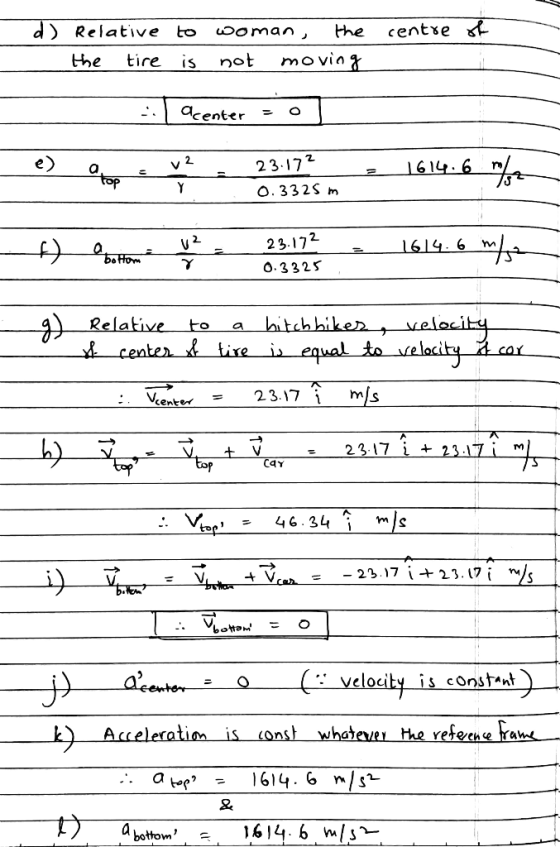 d) Relative to woman, the centre of
the tire is not moving
∴ a_center = 0
e) a_top = v²/r = 23.17²/0.3325 m = 1614.6 m/s²
f) a_bottom = v²/r = 23.17²/0.3325 = 1614.6 m/s²
g) Relative to a hitchhiker, velocity
of center of tire is equal to velocity of car
∴ V⃗center = 23.17 î m/s
h) V⃗top' = V⃗top + V⃗car = 23.17 î + 23.17 î m/s
∴ Vtop' = 46.34 î m/s
i) V⃗bottom' = V⃗bottom + V⃗car = -23.17 î + 23.17 î m/s
∴ V⃗bottom' = 0
j) a'center = 0 (∵ velocity is constant)
k) Acceleration is const whatever the reference frame
∴ a top' = 1614.6 m/s²
&
l) a bottom' = 1614.6 m/s²